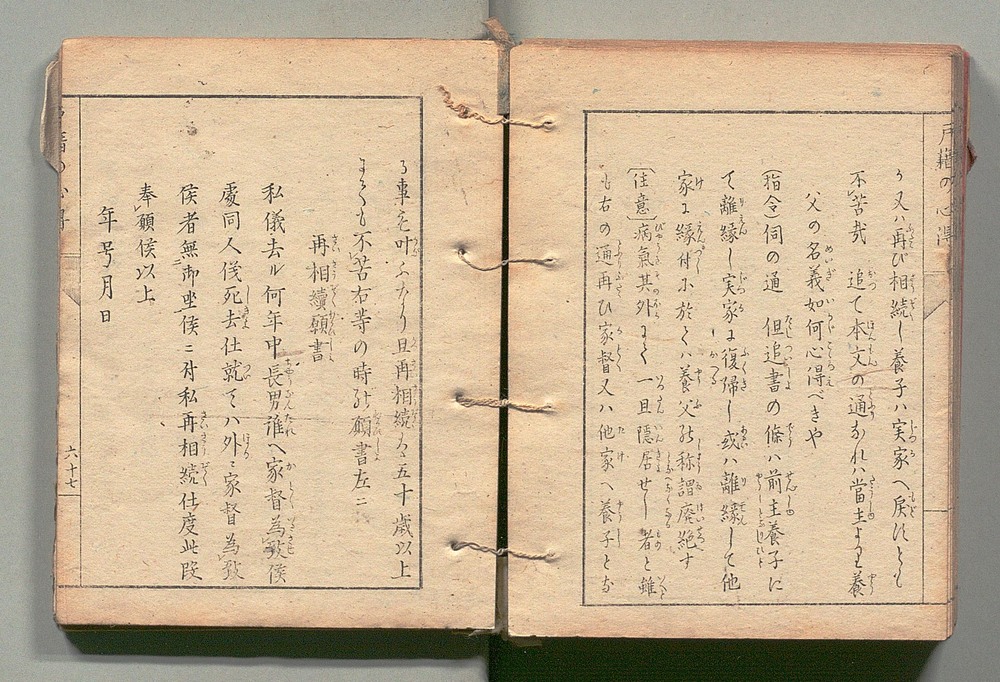 戸籍の心得
う又ハ再び相続し養子ハ実家へ戻すとも
不苦哉 追て本文の通なれハ當主より養
父の名義如何心得べきや
(指令)伺の通 但追書の條ハ前主養子に
て離縁し実家に復帰し或ハ離縁して他
家に縁付に於てハ養父の称謂廃絶す
(注意)病氣其外にて 一旦隠居せし者と雖
も右の通再ひ家督又ハ他家へ養子とな
る事を叶ふなり且再相続ハ五十歳以上
にても不苦右等の時の願書左ニ
再相續願書
私儀去ル何年中長男誰へ家督為致候
處同人儀死去仕就てハ外ニ家督為致
候者無御坐候ニ付私再相続仕度此段
奉願候以上
年号月日
六十七